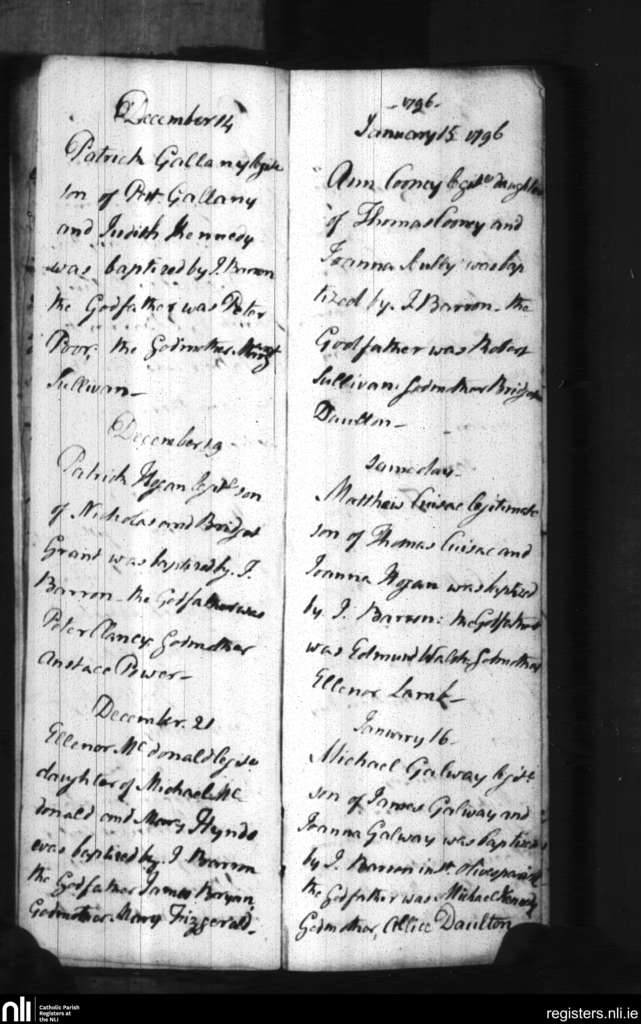 December 14
Patrick Gallany legite
son of Patt Gallany
and Judith Kennedy
was baptized by J. Barron
the Godfather was Peter
Poor, the Godmother Margt
Sullivan
December 19
Patrick Hogan legite son
of Nicholas and Bridget
Grant was baptized by J.
Barron - the Godfather was
Peter Clancy Godmother
Anstace Power -
December 21
Ellenor Mc donald legite
daughter of Michael Mc
donald and Mary Hynds
was baptized by J Barron
the Godfather James Bryan
Godmother Mary Fitzgerald.
- 1796 -
January 15 1796
Ann Cooney legite daughter
of Thomas Cooney and
Joanna was bap
tized by J Barron - the
Godfather was Robert
Sullivan. Godmother Bridget
Daulton -
same day -
Matthew Cusac legitimate
son of Thomas Cusac and
Joanna Hogan was baptized
by J. Barron: the Godfather
was Edmund Walsh, Godmother
Ellenor Lamb -
January 16 -
Michael Galway legite
son of James Galway and
Joanna Galway was baptized
by J. Barron in St
the Godfather was Michael Kennedy
Godmother, Allice Daulton
nli
Catholic Parish
Registers at
the NLI
registers.nli.ie